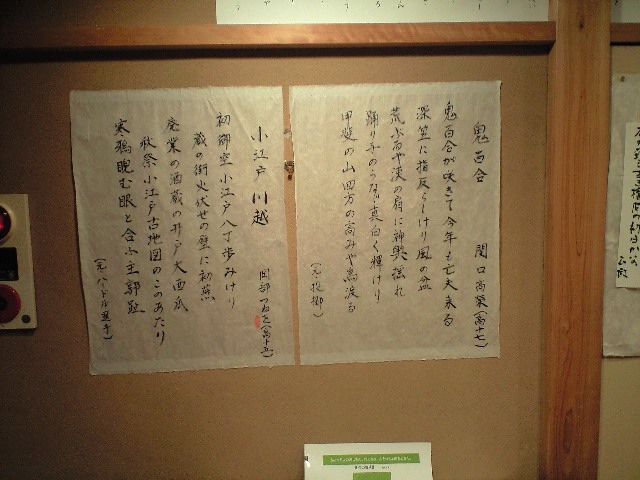 鬼百合 関口高榮(高十七)
鬼百合が咲きて今年も亡夫来る
深笠に指反らしけり風の盆
荒ぶるや漢の肩に神輿揺れ
踊り手のうなじ真白く輝けり
甲斐の山四方の高みや鳥渡る
小江戸川越
岡部つねを(高十五)
初御空小江戸八丁歩みけり
蔵の街火伏せの壁に初燕
廃業の酒蔵の井戸大西瓜
秋祭小江戸古地図のこのあたり
寒鴉睨む眼と合ふ主郭趾